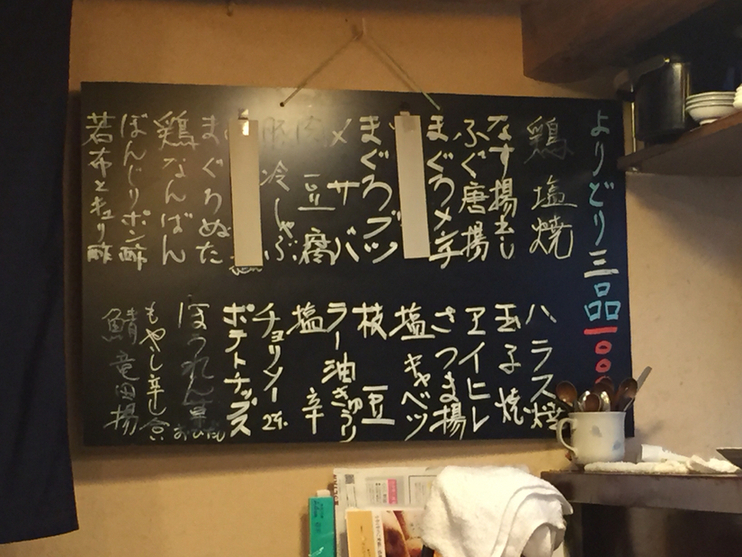 よりどり三品一〇〇
鶏塩焼
なす揚出し
ふぐ唐揚
まぐろメンチ
まぐろブツ
〆サバ
肉豆腐
豚冷しゃぶ
まぐろぬた
鶏なんばん
ぼんじりポン酢
若布とキュウリ酢
ハラス焼
玉子焼
エイヒレ
さつま揚
塩キャベツ
枝豆
ラー油きゅうり
塩辛
チョリソー2ケ
ポテトナッゲス
ほうれん草おひたし
もやし辛し合い
鯖竜田揚